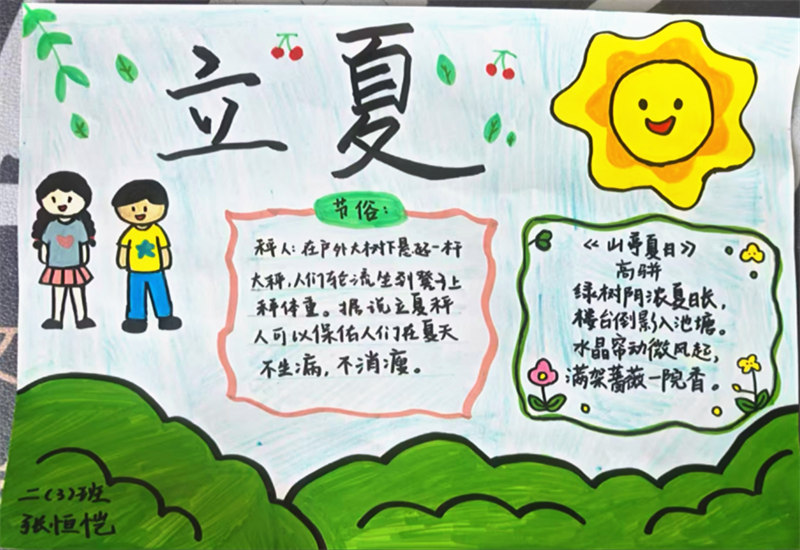 立夏
节俗：
秤人：在户外大树下悬起一杆
大秤，人们轮流坐到凳子上
秤体重。据说立夏秤
人可以保佑人们在夏天
不生病，不消瘦。
《山亭夏日》
高骈
绿树阴浓夏日长，
楼台倒影入池塘。
水晶帘动微风起，
满架蔷薇一院香。
二（3）班
张恒恺